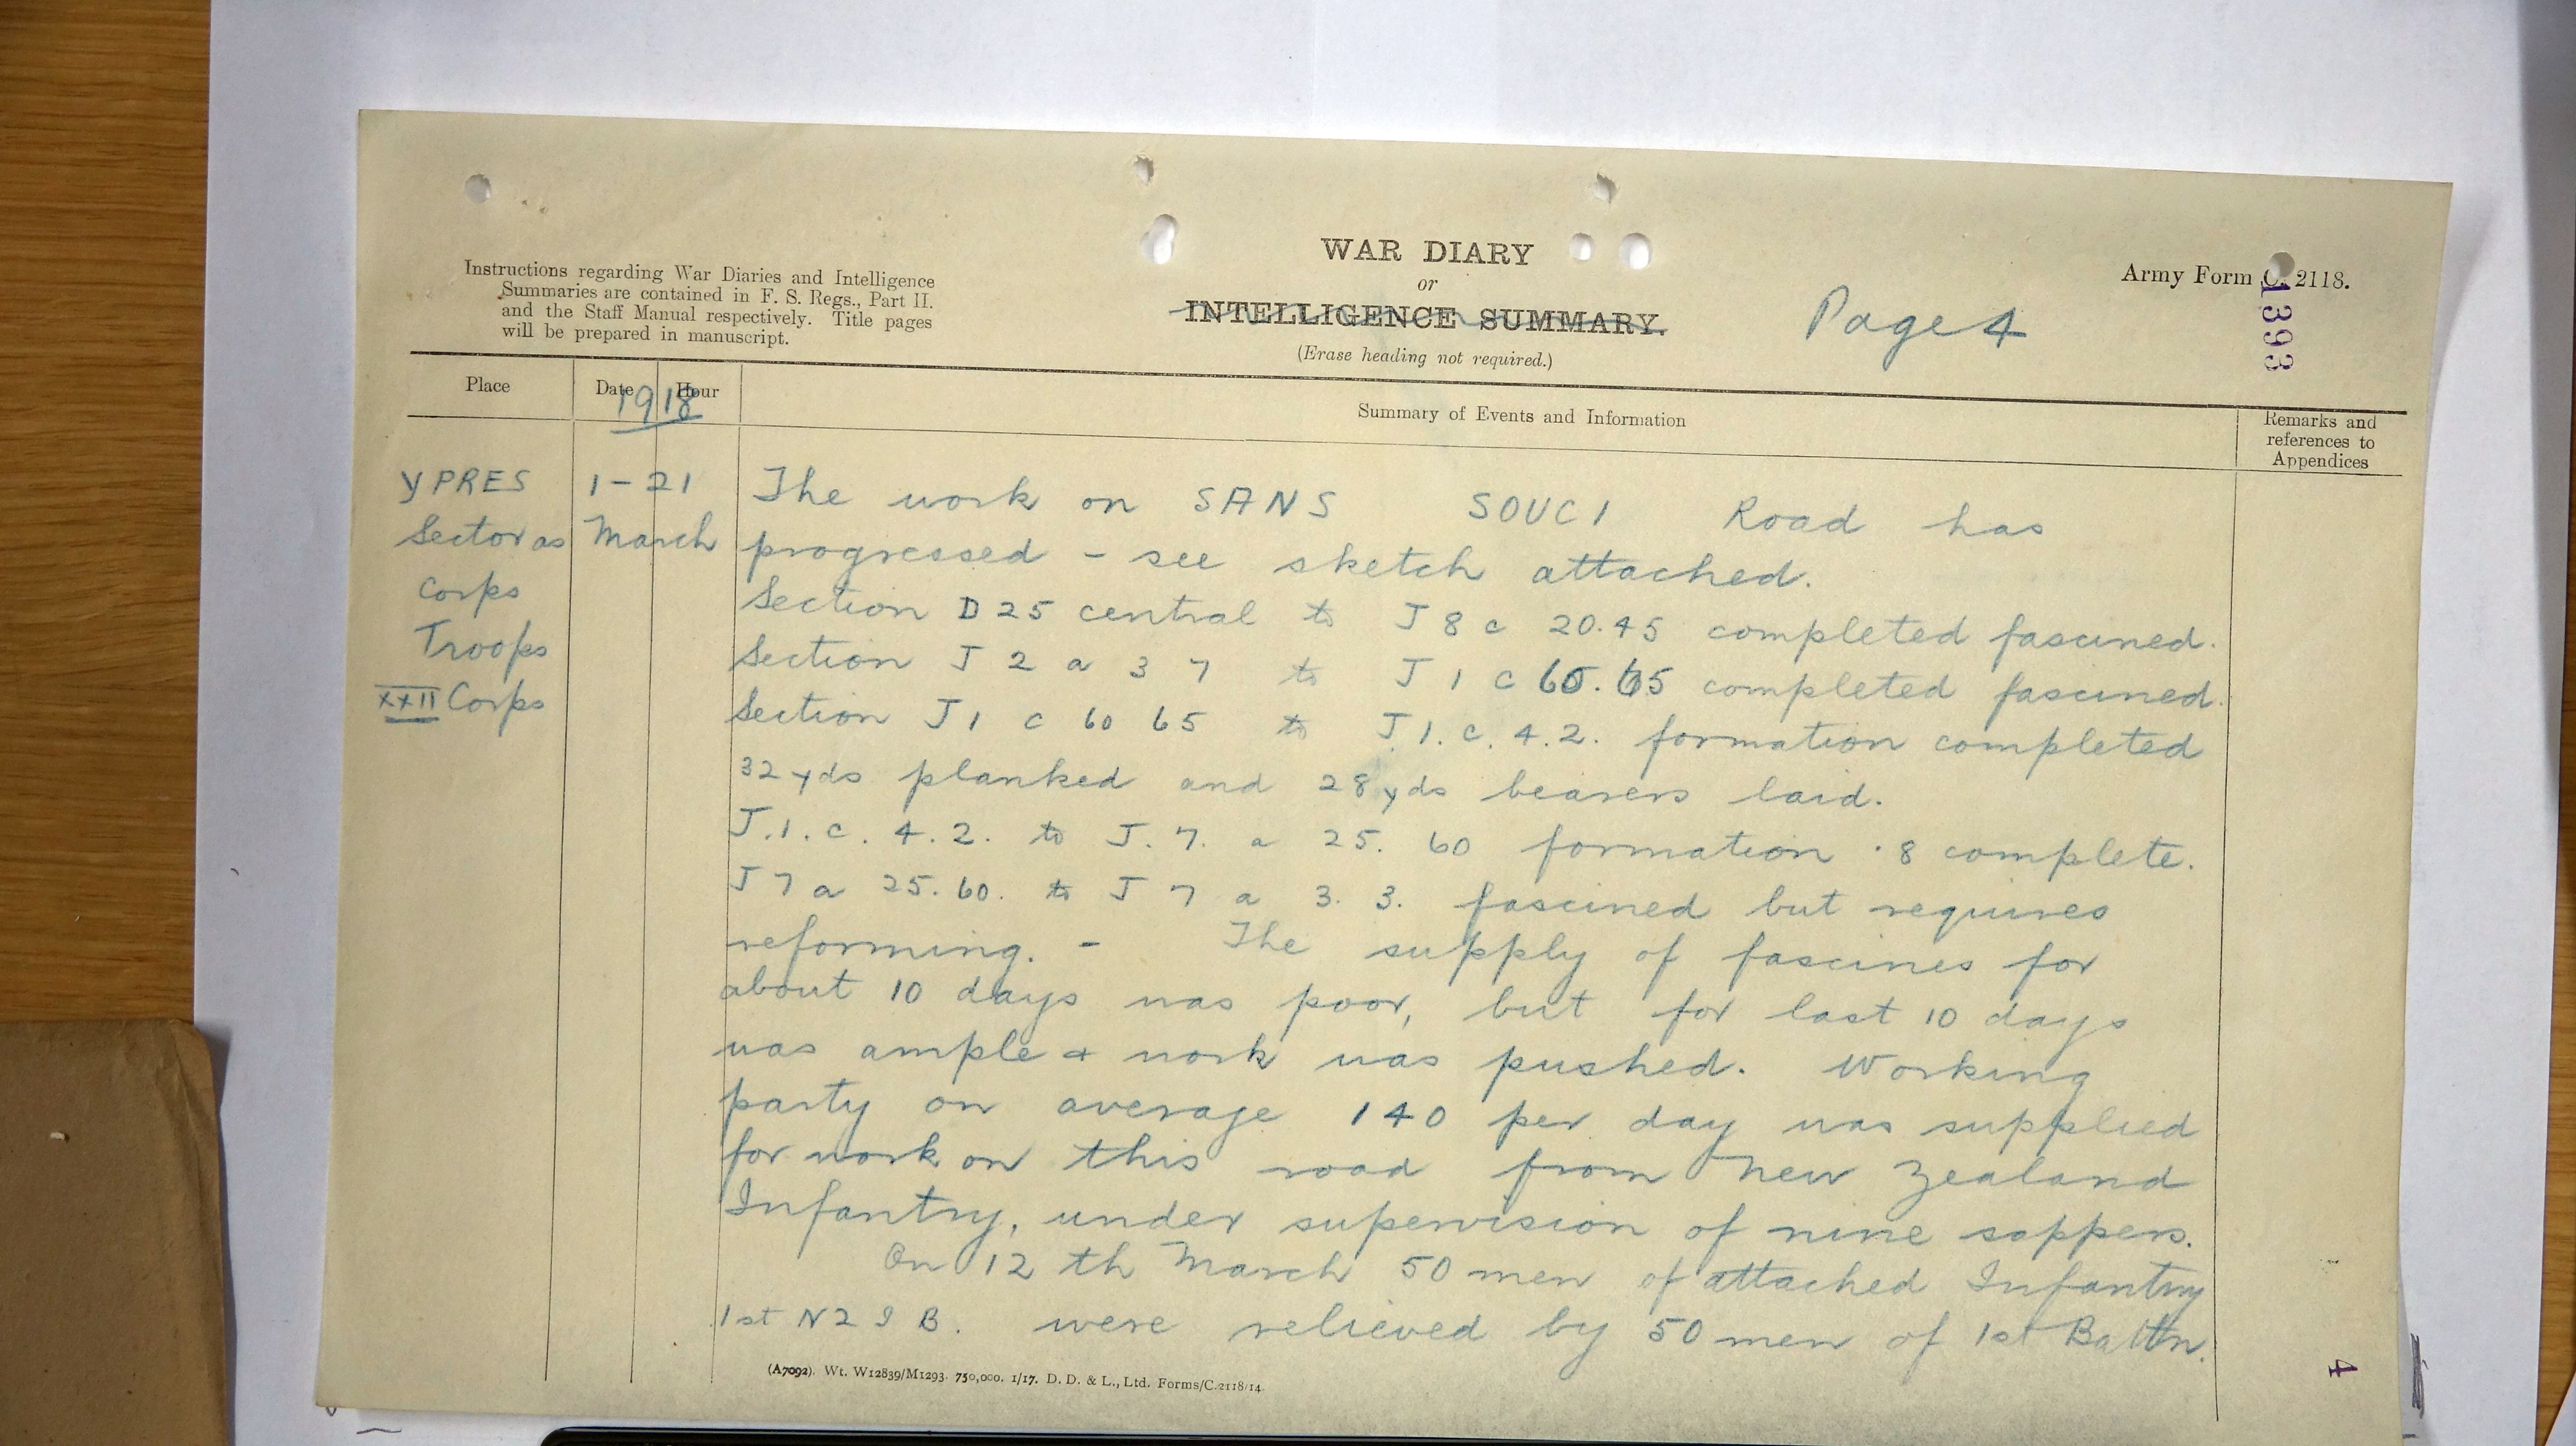 Instructions regarding War Diaries and Intelligence
Summaries are contained in F. S. Regs., Part II.
and the Staff Manual respectively. Title pages
will be prepared in manuscript.
WAR DIARY
or
INTELLIGENCE SUMMARY.
(Erase heading not required.)
Page 4
Army Form C. 2118.
1393
Place
Date
Hour
1918
Summary of Events and Information
Remarks and
references to
Appendices
YPRES
Sector as
Corps
Troops
XXII Corps
1-21
March
The work on SANS SOUCI Road has
progressed - see sketch attached.
Section D 25 central to J 8 c 20.45 completed fascined.
Section J 2 a 3 7 to J 1 c 60.65 completed fascined.
Section J 1 c 60 65 to J.1.c.4.2. formation completed
32 yds planked and 28 yds bearers laid.
J.1.c.4.2. to J.7.a 25.60 formation .8 complete.
J 7 a 25.60. to J 7 a 3.3. fascined but requires
reforming. - The supply of fascines for
about 10 days was poor, but for last 10 days
was ample + work was pushed. Working
party on average 140 per day was supplied
for work on this road from New Zealand
Infantry, under supervision of nine sappers.
On 12 th March 50 men of attached Infantry
1st N Z I B. were relieved by 50 men of 1st Battn.
(A7092). Wt. W12839/M1293. 750,000. 1/17. D. D. & L., Ltd. Forms/C.2118/14.
4